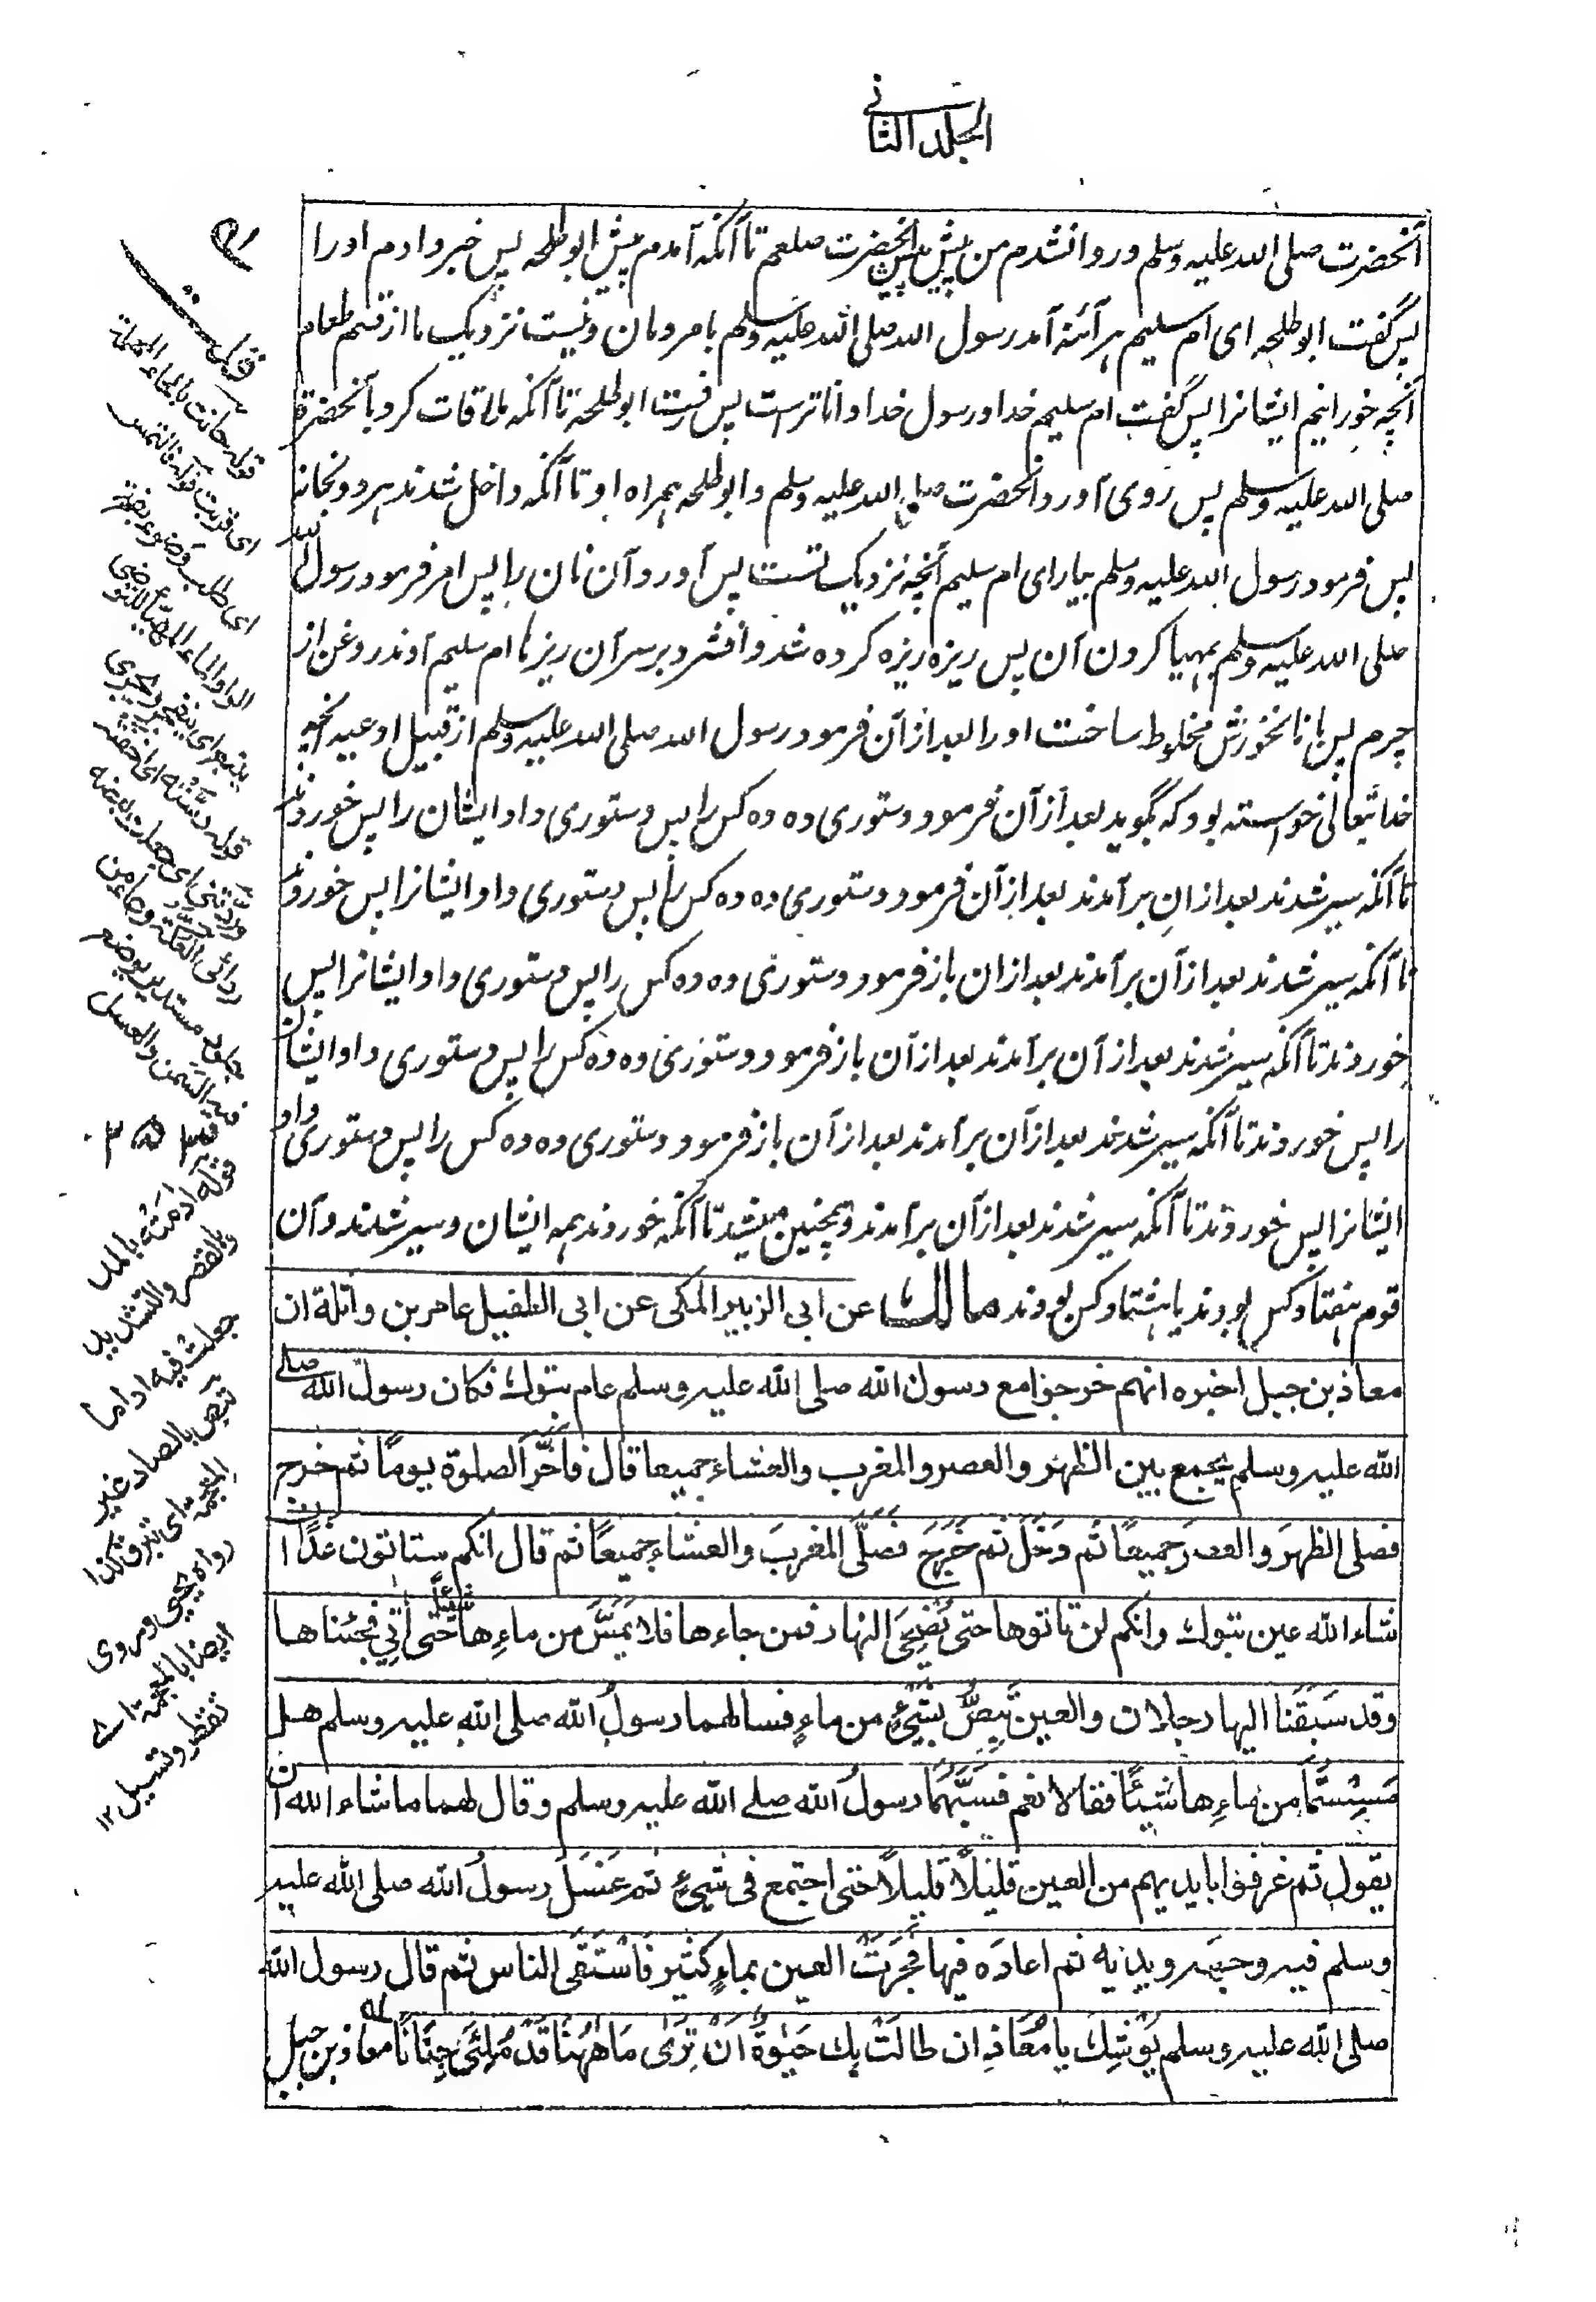 الجلد الثانی
آنحضرت صلی الله علیه وسلم و روانشدم من پیش پیش آنحضرت صلعم تا آنکه آمدم پیش ابو طلحه پس خبر دادم اورا
پس گفت ابو طلحه ای ام سلیم هر آئنه آمد رسول الله صلی الله علیه وسلم با مردمان و نیست نزدیک ما از قسم طعام
آنچه خورانیم ایشانرا پس گفت ام سلیم خدا و رسول خدا داناتر است پس رفت ابو طلحه تا آنکه ملاقات کرد بآنحضرة
صلی الله علیه وسلم پس روی آورد آنحضرت صلی الله علیه وسلم و ابو طلحه همراه او تا آنکه داخل شدند هر دو بخانه
پس فرمود رسول الله علیه وسلم بیار ای ام سلیم آنچه نزدیک تست پس آورد آن نان را پس امر فرمود رسول الله
صلی الله علیه وسلم بمهیا کردن آن پس ریزه ریزه کرده شد و افشرد بر سر آن ریزها ام سلیم آوند روغن از
چرم پس با نانخورش مخلوط ساخت اورا بعد ازان فرمود رسول الله صلی الله علیه وسلم از قبیل ادعیه آنچه
خدا تعالی خواسته بود که بگوید بعد از آن فرمود دستوری ده ده کس را پس دستوری داد ایشان را پس خوردند
تا آنکه سیر شدند بعد ازان برآمدند بعد از آن فرمود دستوری ده ده کس را پس دستوری داد ایشانرا پس خوردند
تا آنکه سیر شدند بعد از آن برآمدند بعد ازان باز فرمود دستوری ده ده کس را پس دستوری داد ایشانرا پس
خوردند تا آنکه سیر شدند بعد از آن برآمدند بعد از آن باز فرمود دستوری ده ده کس را پس دستوری داد ایشان
را پس خوردند تا آنکه سیر شدند بعد از آن برآمدند بعد از آن باز فرمود دستوری ده ده کس را پس دستوری داد
ایشانرا پس خوردند تا آنکه سیر شدند بعد از آن برآمدند و همچنین میشد تا آنکه خوردند همه ایشان و سیر شدند و آن
قوم هفتاد کس بودند یا هشتاد کس بودند مالك عن ابی الزبیر المکی عن ابی الطفیل عامر بن واثلة ان
معاذ بن جبل اخبره انهم خرجوا مع رسول الله صلی الله علیه وسلم عام تبوك فكان رسول الله صلے
الله علیه وسلم یجمع بین الظهر والعصر والمغرب والعشاء جمیعا قال فَاَخَّرَ الصلوة یومًا ثم خرج
فصلی الظهرَ والعصرَ جمیعًا ثم دَخَلَ ثم خَرَجَ فَصَلَّی المغربَ والعشاءَ جمیعًا ثم قال انکم ستاتون غدًا ان
شاء الله عین تبوك وانکم لن تاتوها حتی یَضْحَی النهار فمن جاءها فلا یَمَسَّ من ماءِها شیئًا حتی اٰتِی فجئناها
وقد سَبَقَنَا الیها رجلان والعین تَبِصُّ بِشَیْءٍ من ماءٍ فسالهما رسولُ الله صلی الله علیه وسلم هل
مَسِسْتُمَا من ماءِها شیئًا فقالا نعم فَسَبَّهُمَا رسولُ الله صلے الله علیه وسلم وقال لهما ما شاء الله ان
یقول ثم غرفوا بایدیهم من العین قلیلًا قلیلًا حتی اجتمع فی شیءٍ ثم غَسَلَ رسولُ الله صلی الله علیه
وسلم فیه وجهَه ویدیه ثم اعادَه فیها فَجَرَتْ العین بماءٍ کثیر فَاسْتَقَی الناس ثم قال رسول الله
صلی الله علیه وسلم یُوْشِكُ یا مُعَاذُ ان طالَتْ بِك حَیٰوةٌ اَنْ تَرٰی مَا هٰهُنَا قَدْ مُلِئَ جِنَانًا معاذ بن جبل
قوله حانت بالحاء المهملة
ای قربت قوله فالتمس
ای طلب وضوء بفتح
الواو الماء المهیأ للتوضی
قوله ادمَتْه بالمد
والقصر والتشدید
جعلت فیه اداما
تبص بالصاد غیر
المعجمة ای تبرق کذا
رواه یحیی وروی
ایضا بالمعجمة ای
تقطر وتسیل ۱۲